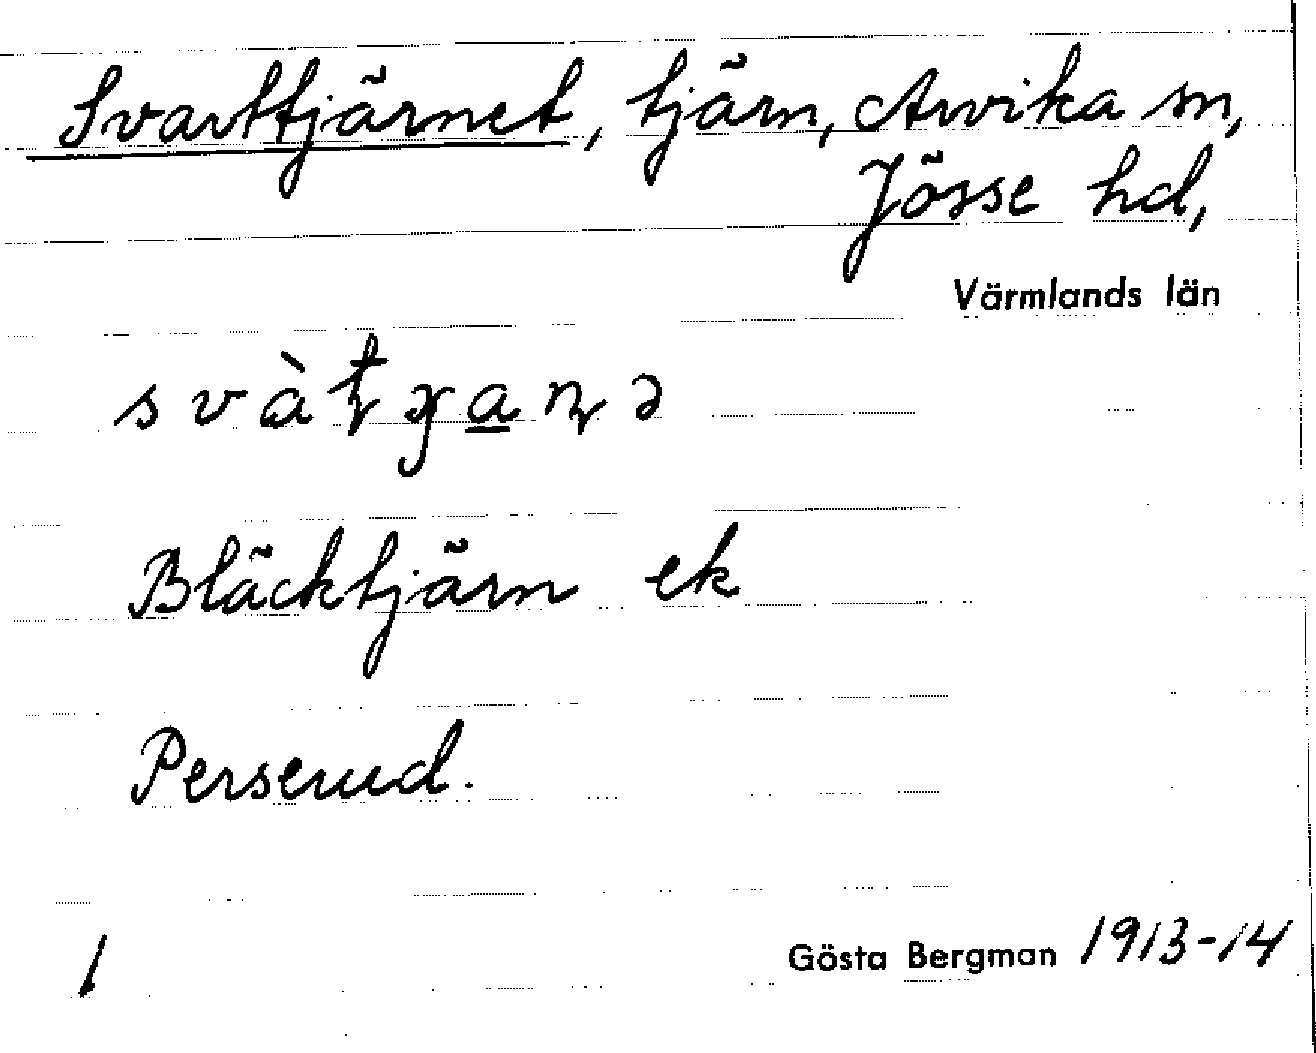 Svarttjärnet, tjärn, Arvika sn,
Jösse hd,
Värmlands län
Bläcktjärn ek
Perserud.
1
Gösta Bergman 1913-14